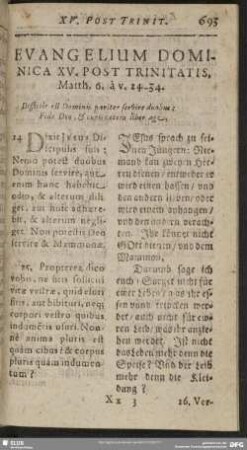 XV. POST TRINIT. 693
EVANGELIUM DOMI-
NICA XV. POST TRINITATIS,
Matth. 6. à v. 24-34.
Difficile est Dominis pariter servire duobus:
Fide Deo, &
24. Dixit Jesus Di-
scipulis suis:
Nemo potest duobus
Dominis servire, aut
enim hunc habebit
odio, & alterum diliget,
aut huic adhærebit,
& alterum negliget.
Non potestis Deo
servire & Mammonæ.
25. Propterea dico
vobis, ne sitis solliciti
vitæ vestræ, quid esuri
sitis, aut bibituri, neq;
corpori vestro quibus
indumétis usuri. Non-
né anima pluris est
quàm cibus? & corpus
pluris quàm indumen-
tum?
JEsus sprach zu sei-
nen Jüngern: Nie-
mand kan zween Her-
ren dienen/ entweder er
wird einen hassen/ und
den andern lieben/ oder
wird einem anhangen/
und den andern verach-
ten. Ihr könnet nicht
GOtt dienen/ und dem
Mammon.
Darumb sage ich
euch/ Sorget nicht für
ewer Leben/ was ihr es-
sen und trincken wer-
det/ auch nicht für ew-
ren Leib/ was ihr anzie-
hen werdet. Ist nicht
das Leben mehr denn die
Speise? Und der Leib
mehr denn die Klei-
dung?
Xx 3
26. Ver-
SLUB